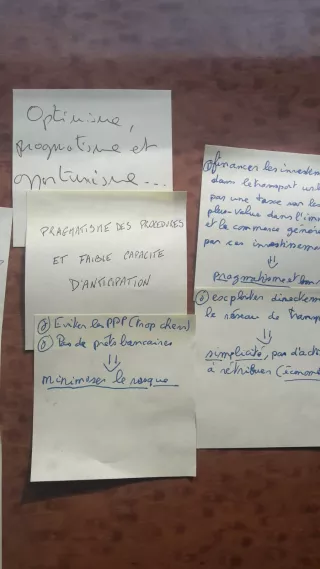 Optimisme,
pragmatisme et
opportunisme...
PRAGMATISME DES PROCEDURES
ET FAIBLE CAPACITE
D'ANTICIPATION
Eviter les PPP (trop chers)
Pas de prêts bancaires
⇓
minimiser le risque
financer les investem
dans le transport urb
par une taxe sur les
plus-value dans l'imm
et le commerce généré
par ces investissemen
⇓
pragmatisme et
exploiter directeme
le réseau de transp
⇓
simplicité, pas d'acti
à rétribuer (économi